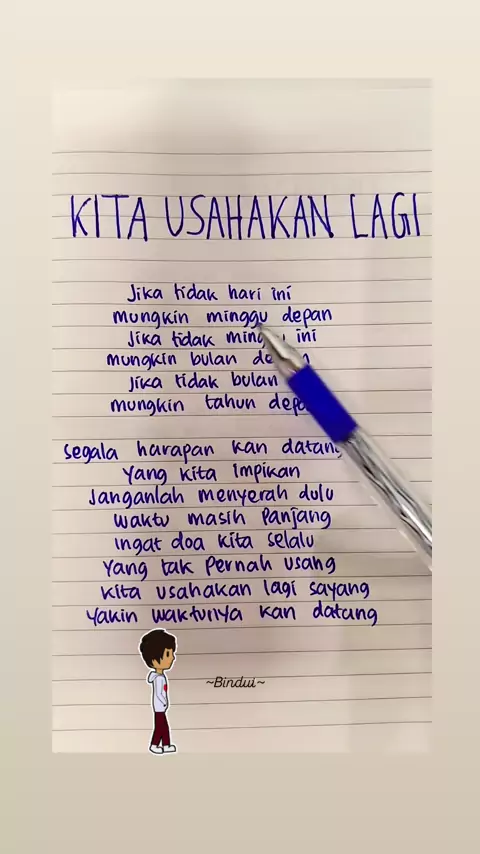 KITA USAHAKAN LAGI
Jika tidak hari ini
mungkin minggu depan
Jika tidak ini
mungkin bulan
Jika tidak bulan
mungkin tahun
segala harapan kan datang
Yang kita impikan
Janganlah menyerah dulu
waktu masih Panjang
Ingat doa kita selalu
Yang tak Pernah usang
kita usahakan lagi sayang
Yakin waktunya kan datang
~Bindui~